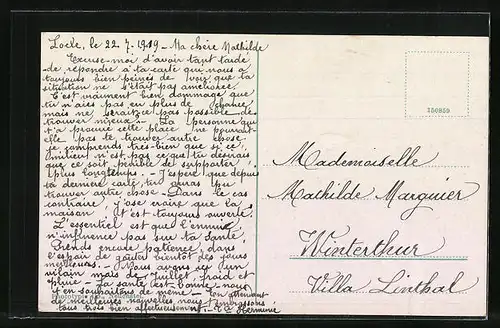 Locle, le 22.7.1919 - Ma chère Mathilde
Excuse-moi d'avoir tant tardé
de répondre à ta carte qui nous a
toujours bien peinés de voir que ta
situation ne s'était pas améliorée.
C'est vraiment bien dommage que
tu n'aies pas eu plus de chance
mais ne serait-ce pas possible de
trouver mieux - La personne qui
t'a procuré cette place ne pourrait-
elle pas te trouver autre chose
je comprends très-bien que si ce
milieu n'est pas ce que tu désirais
que ce soit pénible de supporter
plus longtemps. - J'espère que depuis
ta dernière carte, tu auras pu
trouver autre chose - Dans le cas
contraire, j'ose croire que la
maison t'est toujours ouverte.
L'essentiel est que l'ennui
n'influence pas sur ta santé,
Prends encore patience, dans
l'espoir de goûter bientôt des jours
meilleurs. - Nous avons eu un
vilain mois de juillet, froid et
pluie - La santé est bonne nous
t'en souhaitons de même - En attendant
de meilleures nouvelles nous t'embrassons
tous très bien affectueusement. Ta Hermine
156859
Mademoiselle
Mathilde Marguier
Winterthur
Villa Linthal